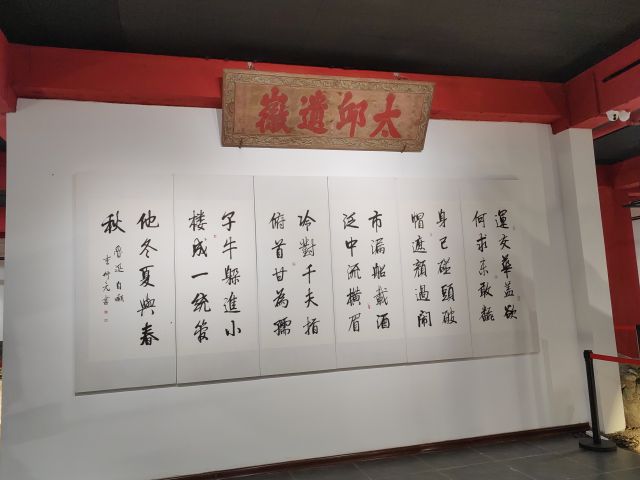 太邱遺徽
運交華盖欲
何求未敢翻
身已碰頭破
帽遮顏過鬧
市漏船載酒
泛中流橫眉
冷對千夫指
俯首甘為孺
子牛躲進小
楼成一統管
他冬夏與春
秋
魯迅自嘲